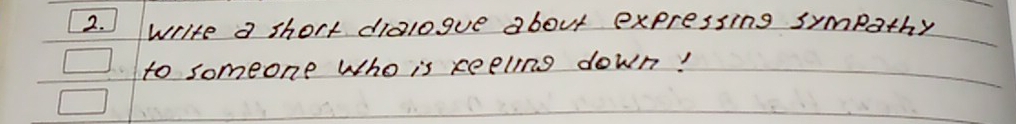 2. Write a short dialogue about expressing sympathy
to someone who is feeling down !